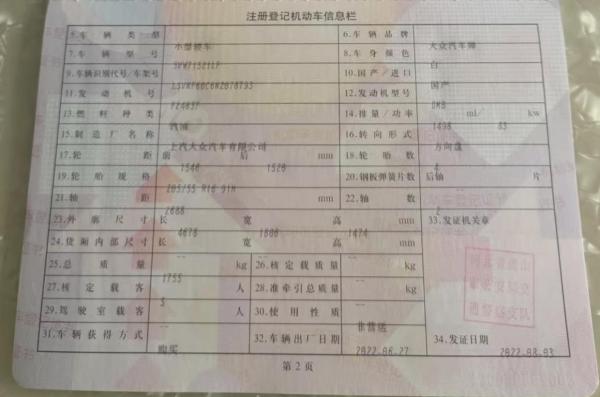 注册登记机动车信息栏
5.车辆类型 小型轿车 6.车辆品牌 大众汽车牌
7.车辆型号 SVW71521LF 8.车身颜色 白
9.车辆识别代号/车架号 10.国产/进口 国产
11.发动机号 12.发动机型号 DMB
13.燃料种类 汽油 14.排量/功率 1498 ml/ 83 kw
15.制造厂名称 上汽大众汽车有限公司 16.转向形式 方向盘
17.轮距 前 1546 后 1526 mm 18.轮胎数 4
19.轮胎规格 205/55 R16 91H 20.钢板弹簧片数 后轴 -- 片
21.轴距 2688 mm 22.轴数 2
23.外廓尺寸 长 4678 宽 1806 高 1474 mm 33.发证机关章
24.货厢内部尺寸 长 -- 宽 -- 高 -- mm
25.总质量 1755 kg 26.核定载质量 -- kg
27.核定载客 5 人 28.准牵引总质量 -- kg
29.驾驶室载客 -- 人 30.使用性质
31.车辆获得方式 购买 32.车辆出厂日期 2022-06-27 34.发证日期 2022-08-03
第2页